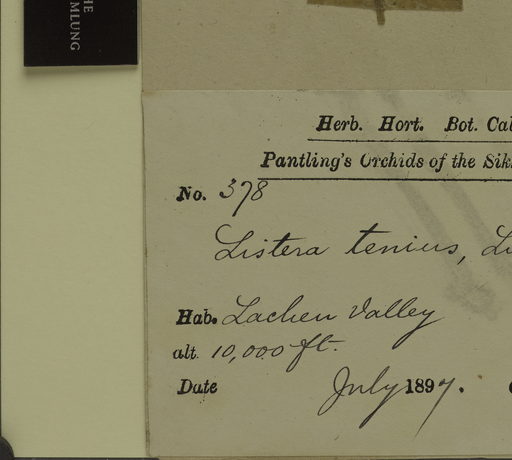 HE
MLUNG
Herb. Hort. Bot. Cal
Pantling's Orchids of the Sik
No. 378
Listera tenius, L
Hab. Lachen Valley
alt. 10,000 ft.
Date July 1897.